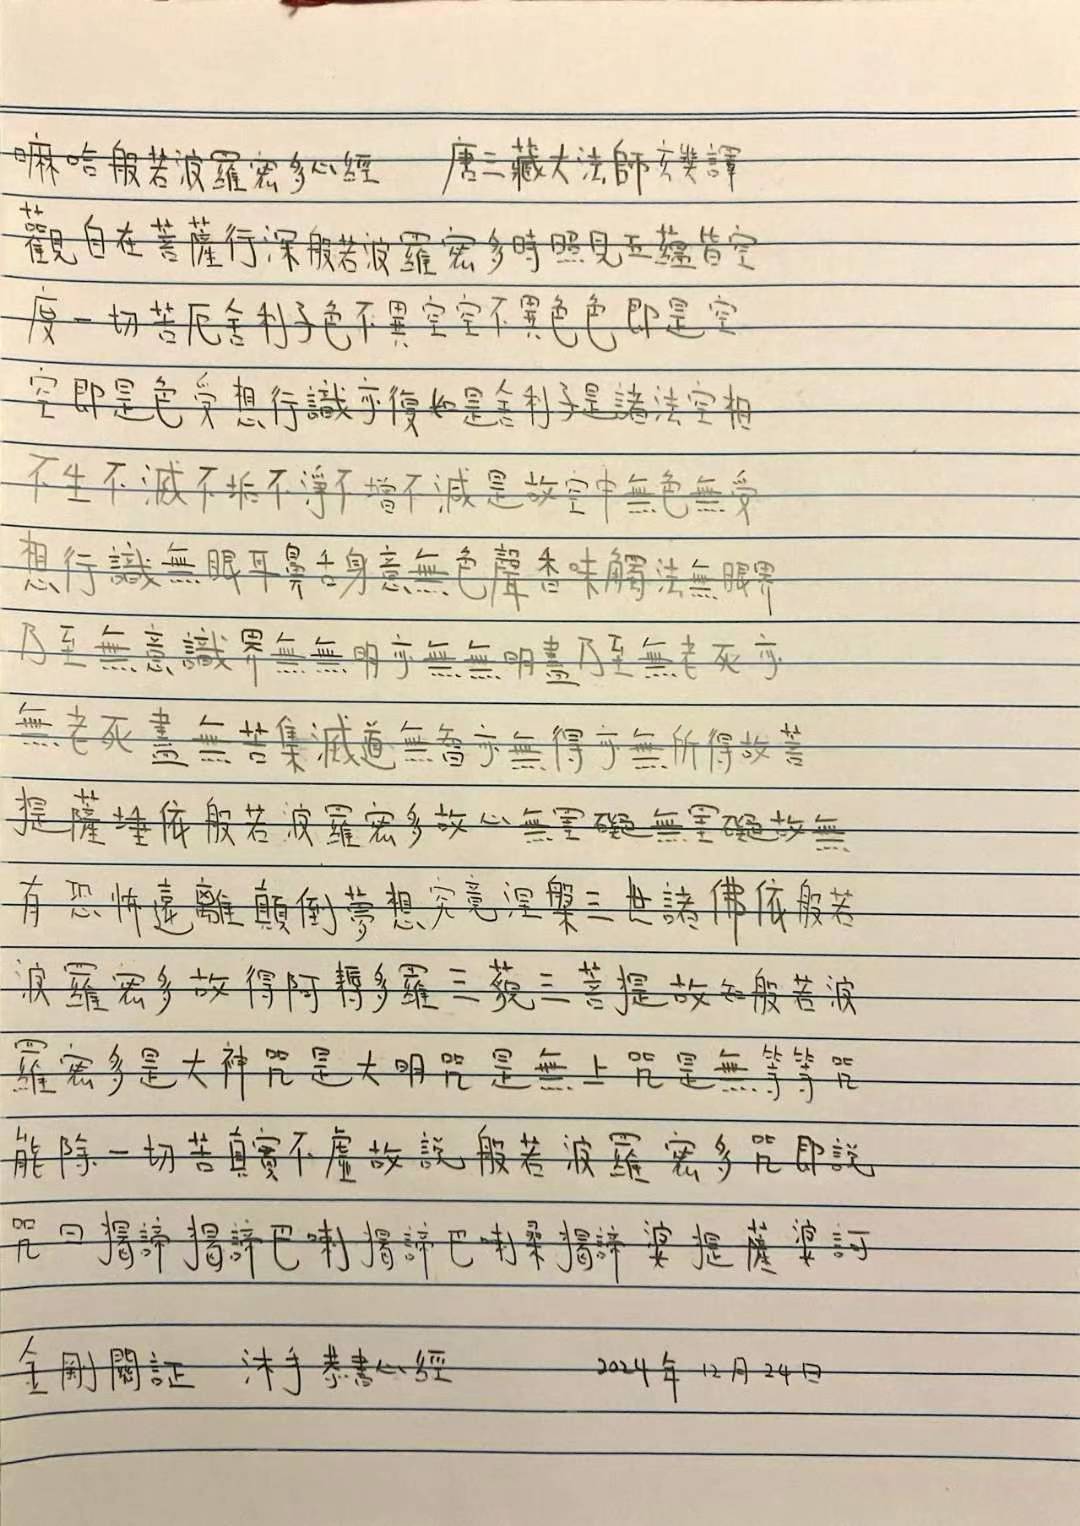 嘛哈般若波羅密多心經 唐三藏大法師玄奘譯
觀自在菩薩行深般若波羅密多時照見五蘊皆空
度一切苦厄舍利子色不異空空不異色色即是空
空即是色受想行識亦復如是舍利子是諸法空相
不生不滅不垢不淨不增不減是故空中無色無受
想行識無眼耳鼻舌身意無色聲香味觸法無眼界
乃至無意識界無無明亦無無明盡乃至無老死亦
無老死盡無苦集滅道無智亦無得亦無所得故菩
提薩埵依般若波羅密多故心無罣礙無罣礙故無
有恐怖遠離顛倒夢想究竟涅槃三世諸佛依般若
波羅密多故得阿耨多羅三藐三菩提故知般若波
羅密多是大神咒是大明咒是無上咒是無等等咒
能除一切苦真實不虛故說般若波羅密多咒即說
咒曰揭諦揭諦巴喇揭諦巴喇桑揭諦婆提薩婆訶
金剛闍証 沐手恭書心經 2024年12月24日